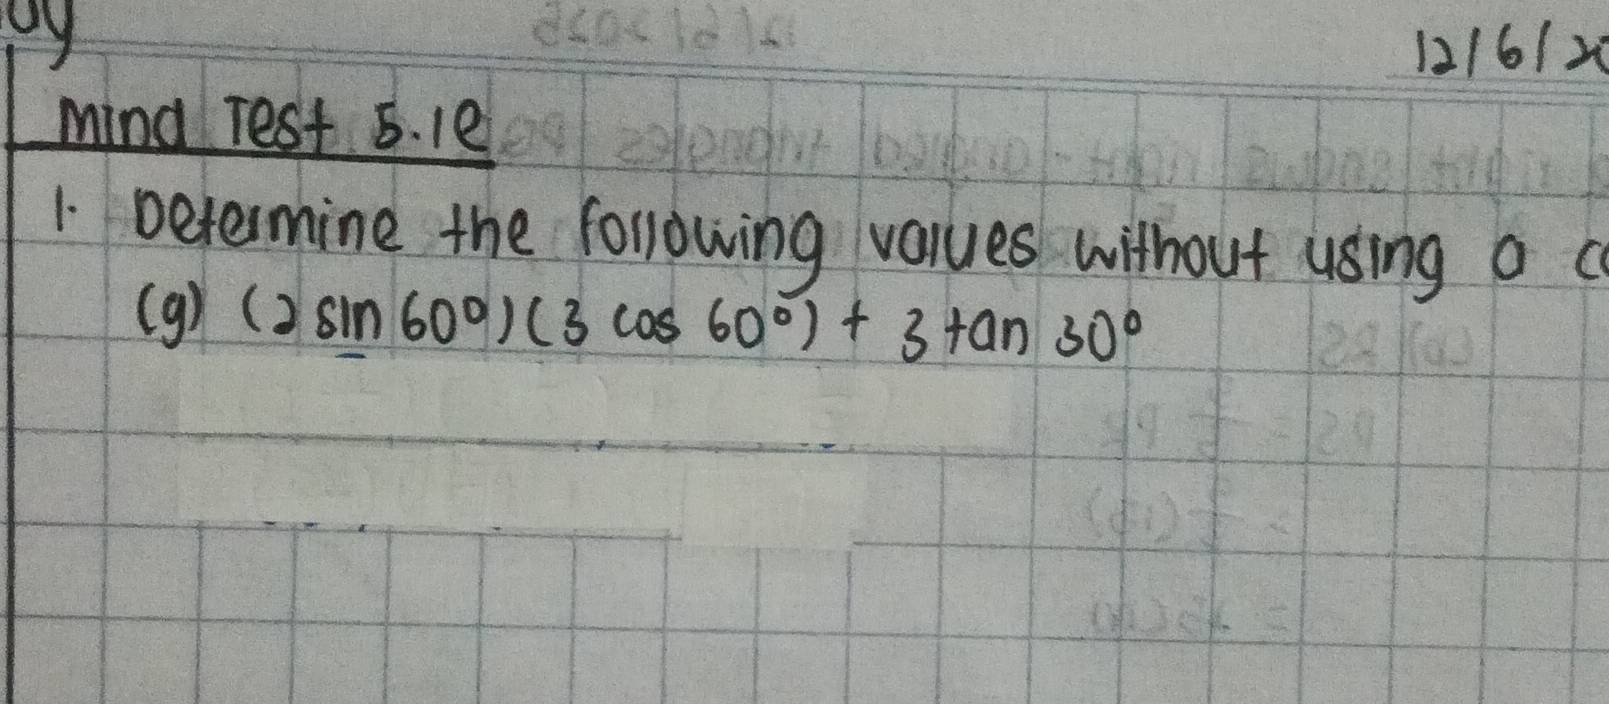 12/6/20
Mind Test 5.1e
1. Determine the following values without using a
(g) (2 sin 60°)(3 cos 60°) + 3 tan 30°